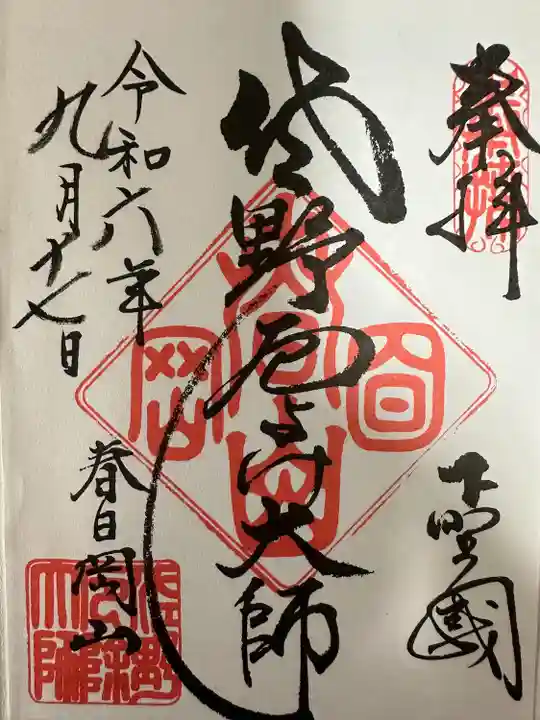 奉拝
下野國
佐野厄よけ大師
春日岡山
令和六年
九月十七日